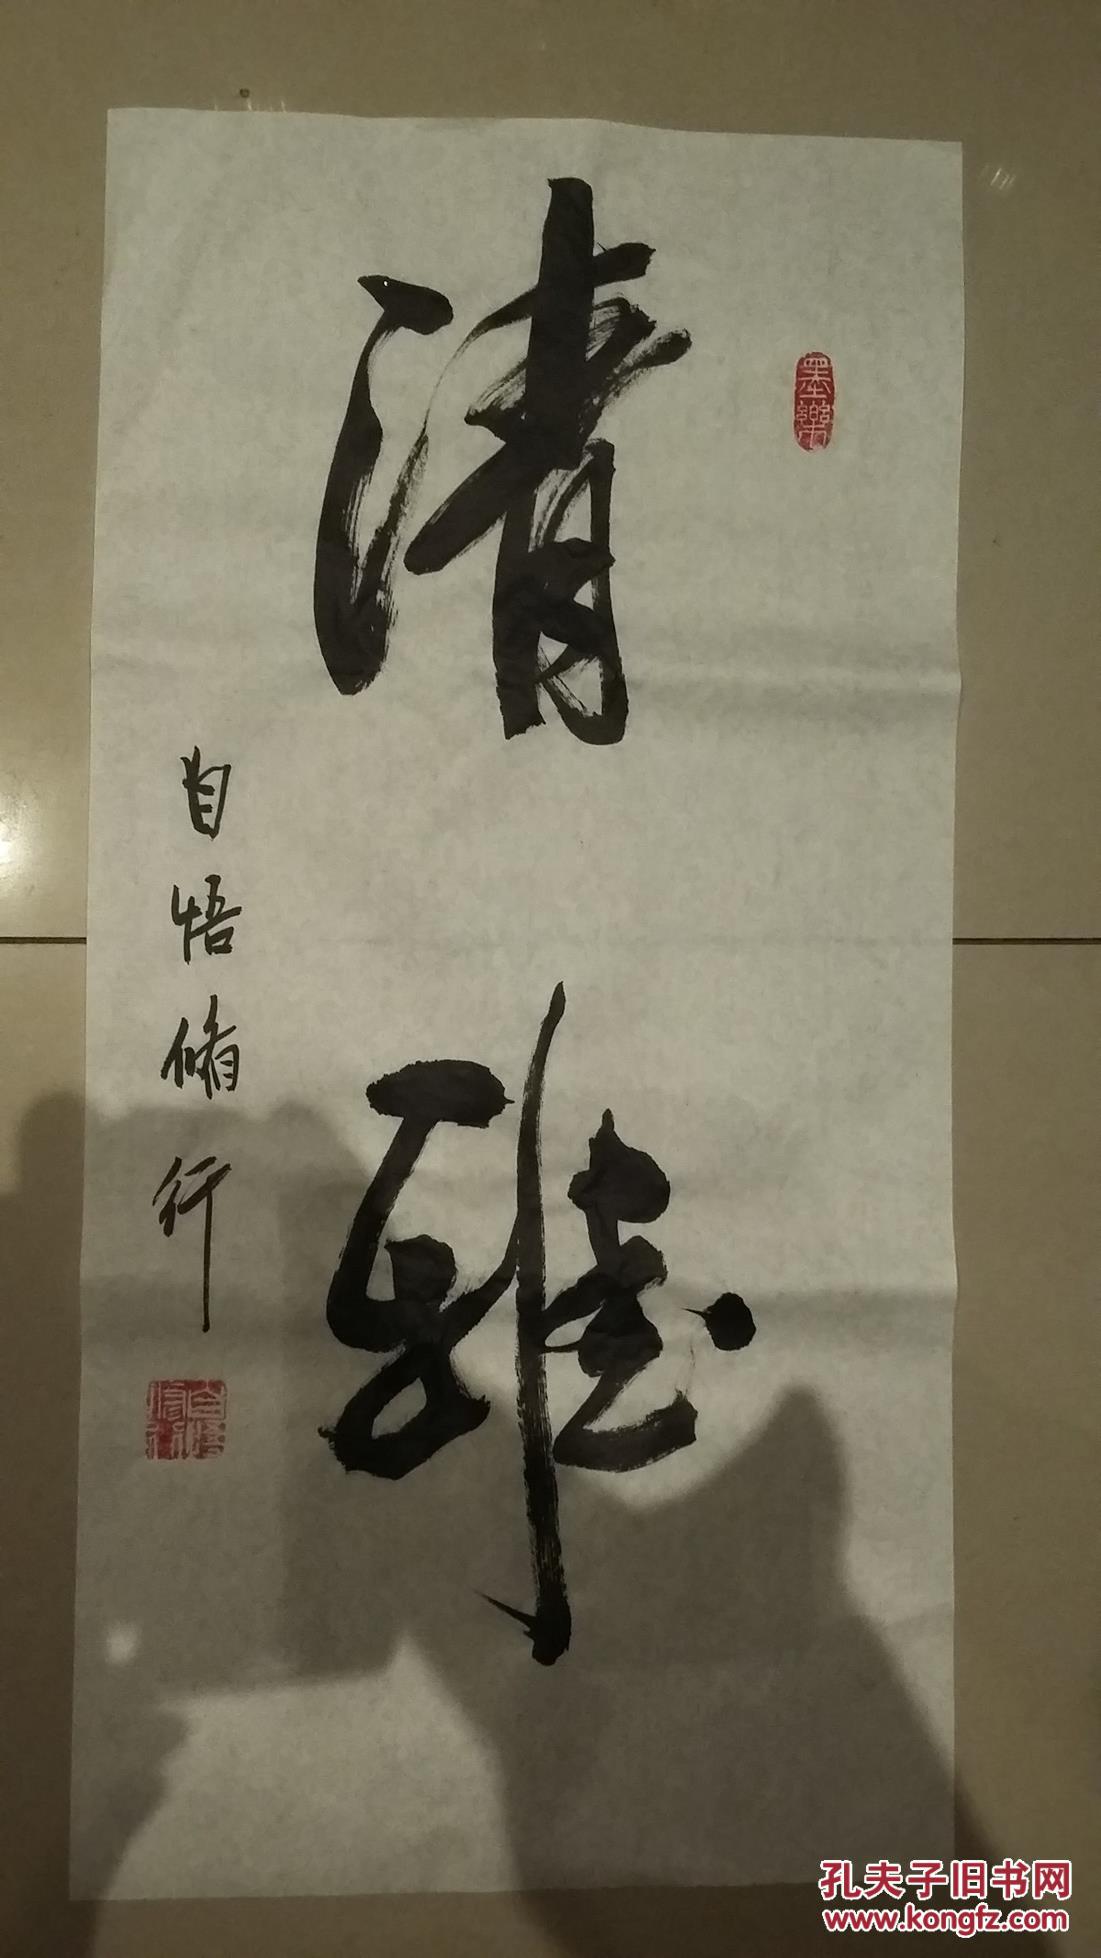 清雅
墨樂
自悟脩行
自悟修行
孔夫子旧书网
www.kongfz.com